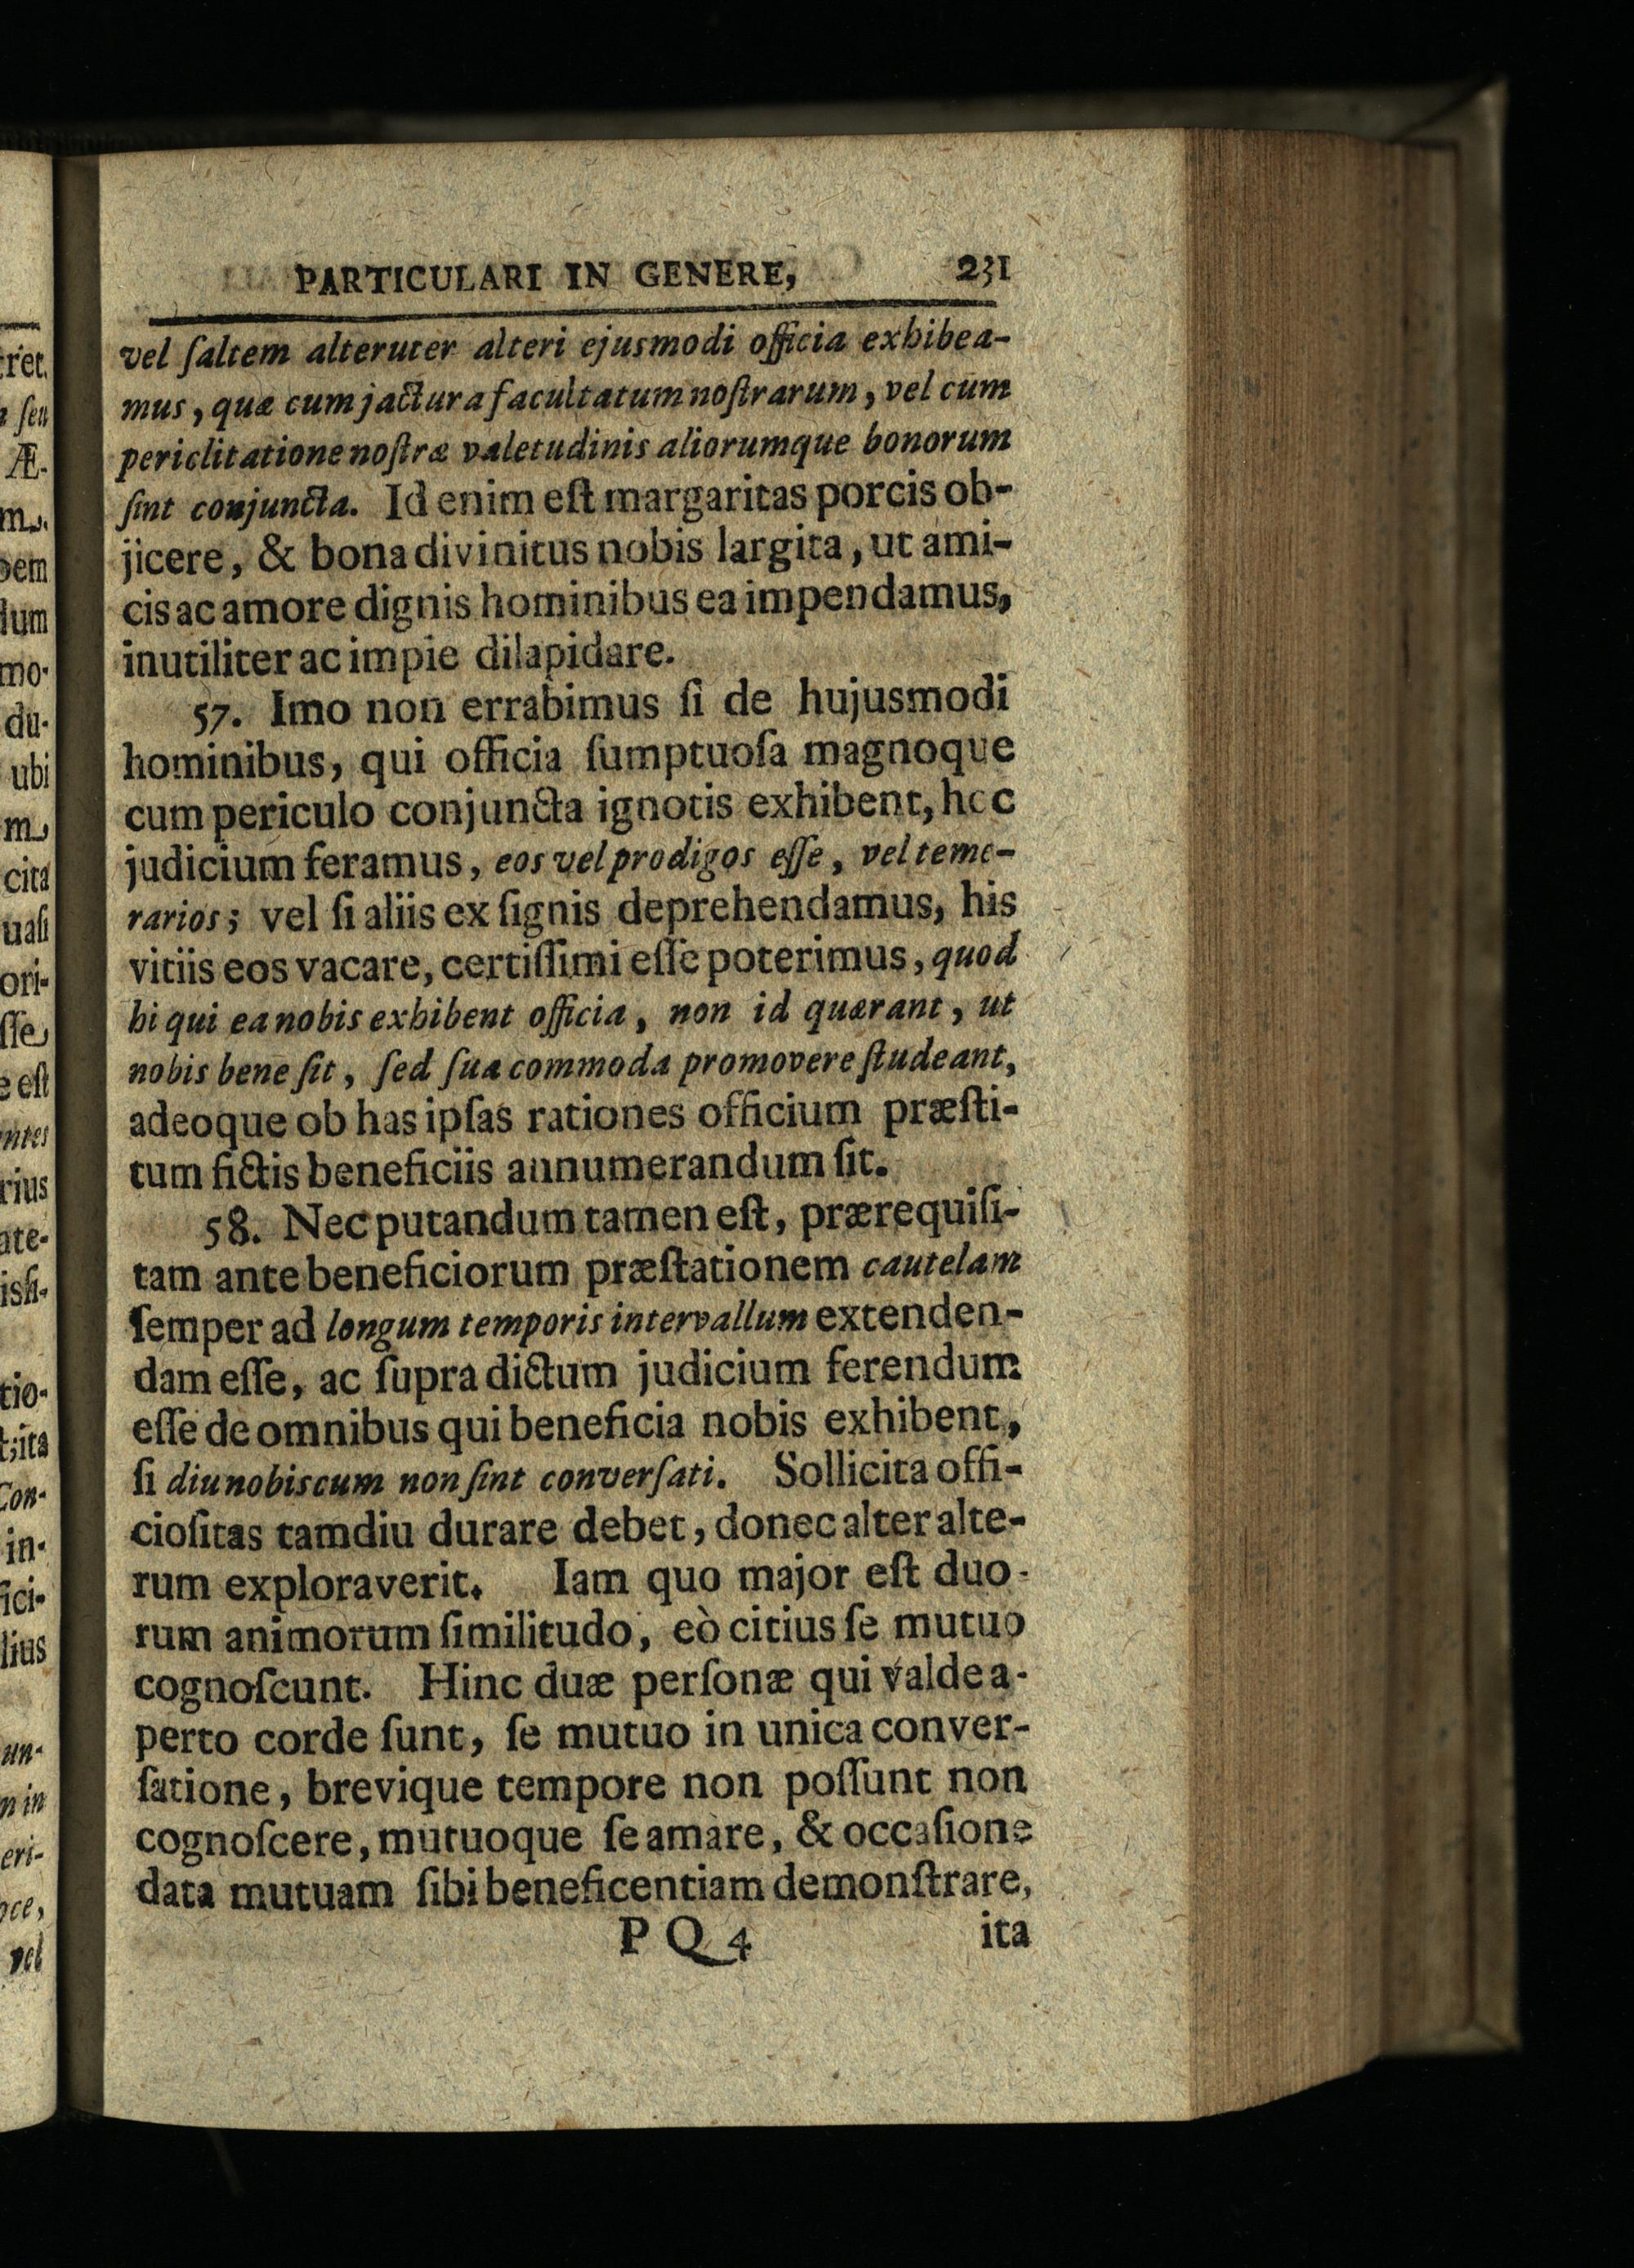 PARTICULARI IN GENERE, 231
vel ſaltem alteruter alteri ejusmodi officia exhibea-
mus, quæ cum jactura facultatum noſtrarum, vel cum
periclitatione noſtræ valetudinis aliorumque bonorum
ſint conjuncta. Id enim eſt margaritas porcis ob-
jicere, & bona divinitus nobis largita, ut ami-
cis ac amore dignis hominibus ea impendamus,
inutiliter ac impie dilapidare.
57. Imo non errabimus ſi de hujusmodi
hominibus, qui officia ſumptuoſa magnoque
cum periculo conjuncta ignotis exhibent, hoc
judicium feramus, eos vel prodigos eſſe, vel teme-
rarios; vel ſi aliis ex ſignis deprehendamus, his
vitiis eos vacare, certiſſimi eſſe poterimus, quod
hi qui ea nobis exhibent officia, non id quærant, ut
nobis bene ſit, ſed ſua commoda promovere ſtudeant,
adeoque ob has ipſas rationes officium præſti-
tum fictis beneficiis annumerandum ſit.
58. Nec putandum tamen eſt, prærequiſi-
tam ante beneficiorum præſtationem cautelam
ſemper ad longum temporis intervallum extenden-
dam eſſe, ac ſupra dictum judicium ferendum
eſſe de omnibus qui beneficia nobis exhibent,
ſi diu nobiscum non ſint converſati. Sollicita offi-
cioſitas tamdiu durare debet, donec alter alte-
rum exploraverit. Iam quo major eſt duo-
rum animorum ſimilitudo, eò citius ſe mutuo
cognoſcunt. Hinc duæ perſonæ qui valde a-
perto corde ſunt, ſe mutuo in unica conver-
ſatione, brevique tempore non poſſunt non
cognoſcere, mutuoque ſe amare, & occaſione
data mutuam ſibi beneficentiam demonſtrare,
P Q 4 ita